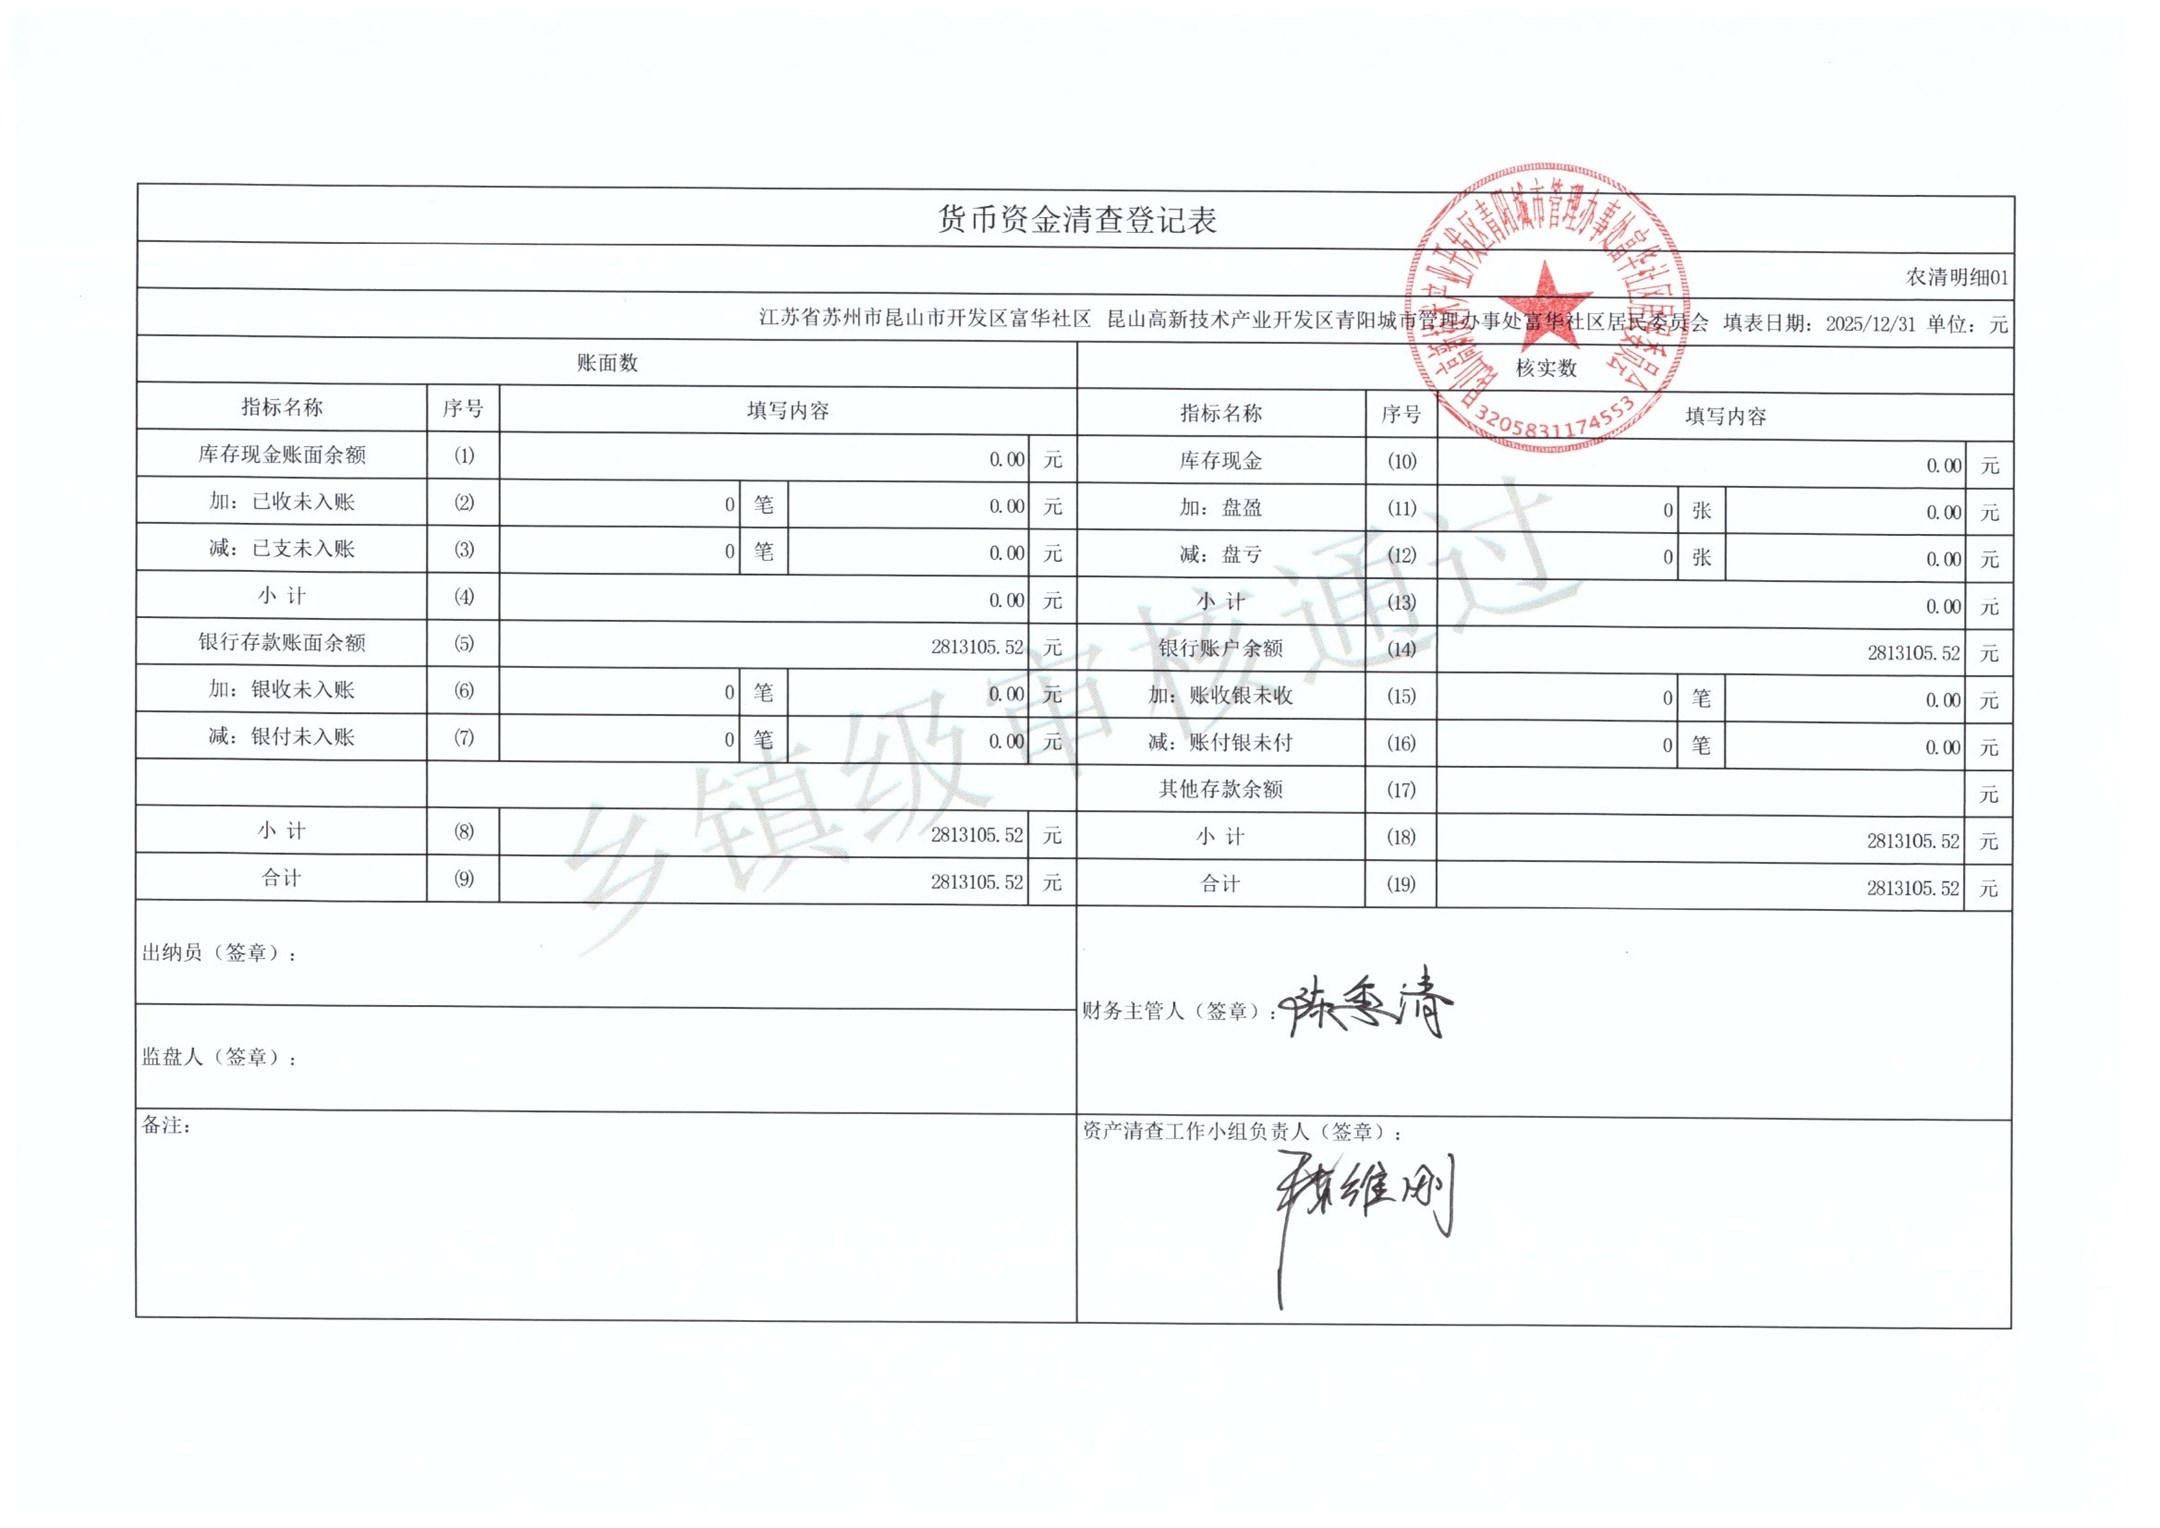 货币资金清查登记表
农清明细01
江苏省苏州市昆山市开发区富华社区 昆山高新技术产业开发区青阳城市管理办事处富华社区居民委员会 填表日期：2025/12/31 单位：元
账面数 核实数
指标名称 序号 填写内容 指标名称 序号 填写内容
库存现金账面余额 (1) 0.00 元 库存现金 (10) 0.00 元
加：已收未入账 (2) 0 笔 0.00 元 加：盘盈 (11) 0 张 0.00 元
减：已支未入账 (3) 0 笔 0.00 元 减：盘亏 (12) 0 张 0.00 元
小 计 (4) 0.00 元 小 计 (13) 0.00 元
银行存款账面余额 (5) 2813105.52 元 银行账户余额 (14) 2813105.52 元
加：银收未入账 (6) 0 笔 0.00 元 加：账收银未收 (15) 0 笔 0.00 元
减：银付未入账 (7) 0 笔 0.00 元 减：账付银未付 (16) 0 笔 0.00 元
其他存款余额 (17) 元
小 计 (8) 2813105.52 元 小 计 (18) 2813105.52 元
合计 (9) 2813105.52 元 合计 (19) 2813105.52 元
出纳员（签章）：
财务主管人（签章）：陈秀清
监盘人（签章）：
备注：
资产清查工作小组负责人（签章）：
维刚
乡镇级审核通过
昆山高新技术产业开发区青阳城市管理办事处富华社区居民委员会
3205831174553